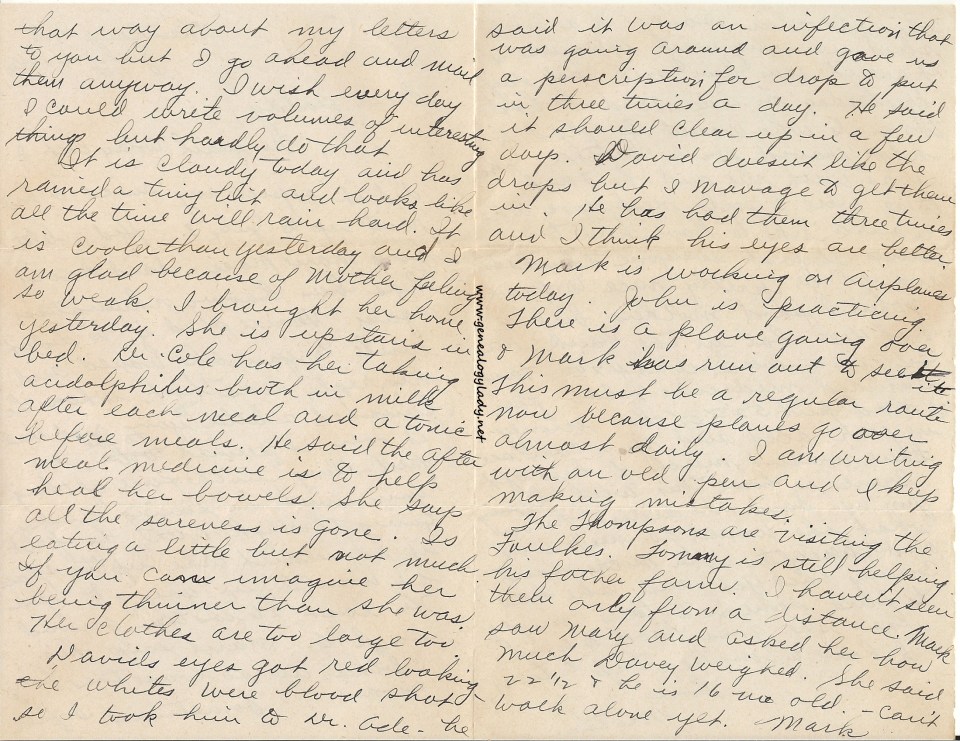 that way about my letters
to you but I go ahead and mail
them anyway. I wish every day
I could write volumes of interesting
things but hardly do that
It is cloudy today and has
rained a tiny bit and looks like
all the time will rain hard. It
is cooler than yesterday and I
am glad because of Mother feeling
so weak. I brought her home
yesterday. She is upstairs in
bed. Dr. Cole has her taking
acidolphilus broth in milk
after each meal and a tonic
before meals. He said the after
meal medicine is to help
heal her bowels. She says
all the soreness is gone. Is
eating a little but not much.
If you can imagine her
being thinner than she was.
Her clothes are too large too.
Davids eyes got red looking -
the whites were blood shot
so I took him to Dr. Ade - he
said it was an infection that
was going around and gave us
a perscription for drop to put
in three times a day. He said
it should clear up in a few
days. David doesn't like the
drops but I manage to get them
in. He has had them three times
and I think his eyes are better.
Mark is working on airplanes
today. John is practicing
There is a plane going over
& Mark has run out to see it
This must be a regular route
now because planes go over
almost daily. I am writing
with an old pen and I keep
making mistakes.
The Thompsons are visiting the
Foulkes. Tommy is still helping
his father farm. I haven't seen
them only from a distance. Mark
saw Mary and asked her how
much Davey weighed. She said
22 1/2 & he is 16 mo old. - can't
walk alone yet. Mark
www.genealogylady.net